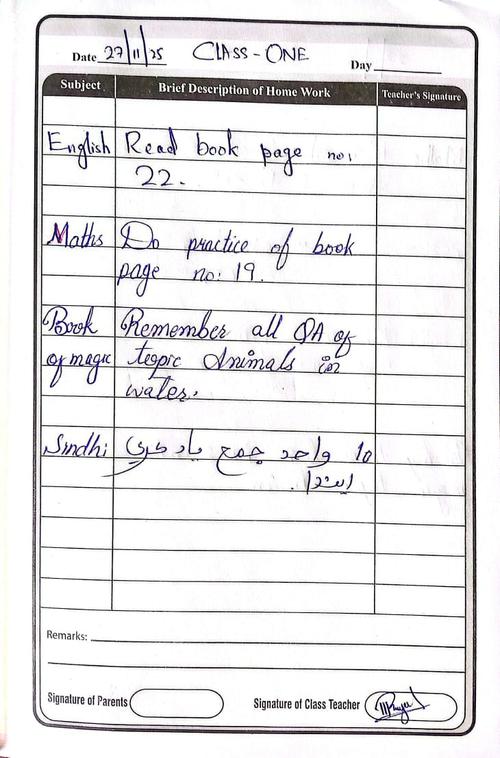 Date 27/11/25 CLASS-ONE Day
Subject Brief Description of Home Work Teacher's Signature
English Read book page no:
22.
Maths Do practice of book
page no: 19.
Book Remember all QA of
of magic topic Animals in
water.
Sindhi 10 واحد جمع ياد ڪري
ايندا.
Remarks:
Signature of Parents Signature of Class Teacher